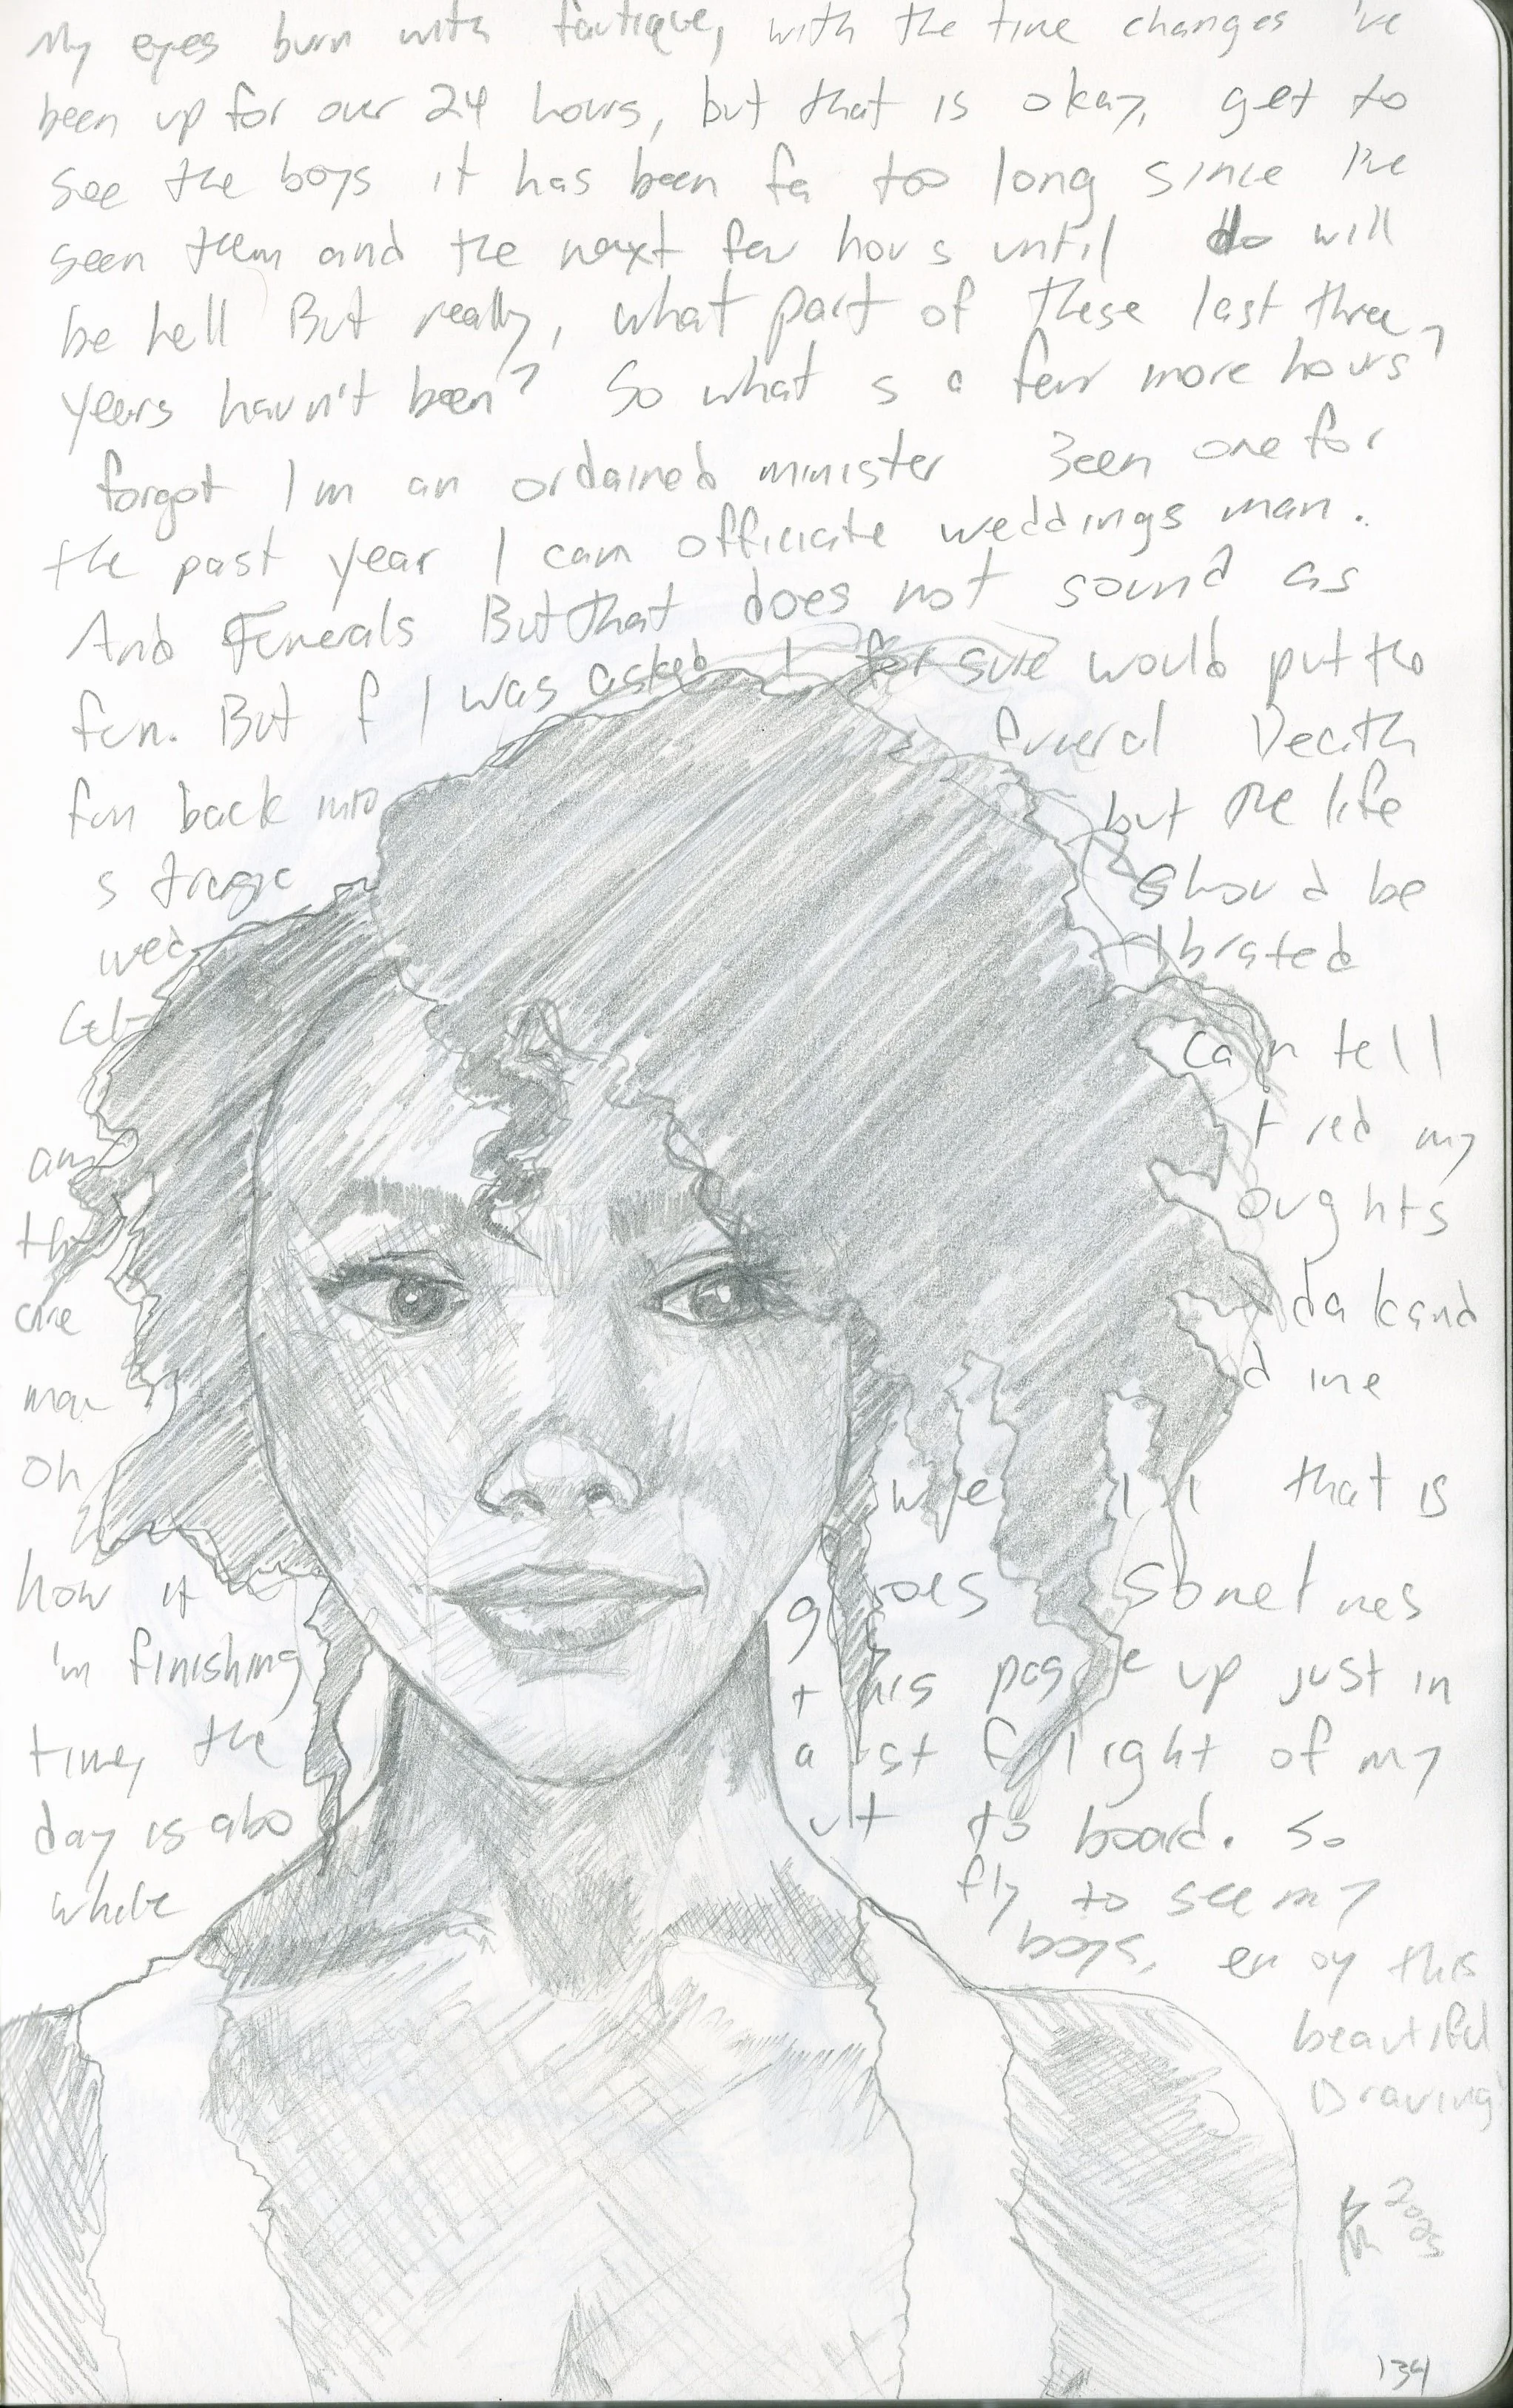 My eyes burn with fautique, with the time changes 've
been up for over 24 hours, but that is okay, get to
see the boys it has been fa too long since I've
seen them and the next few hours until do will
be hell But really, what part of these last three
years havn't been? So what s a few more hours?
forgot I'm an ordained minister Been one for
the past year I can officiate weddings man.
And Funerals But that does not sound as
fun. But f I was asked I for sure would put the
fun back into funeral Death
s tragic but the life
wed should be
Cel- lbrated
am can tell
the t red my
are oughts
mor da k and
Oh d me
we l l that is
how it goes Somet mes
'm finishing this page up just in
time, the a st flight of my
day is abo ut to board. So
while fly to see my
boys, en oy this
beautiful
Drawing
2025
134